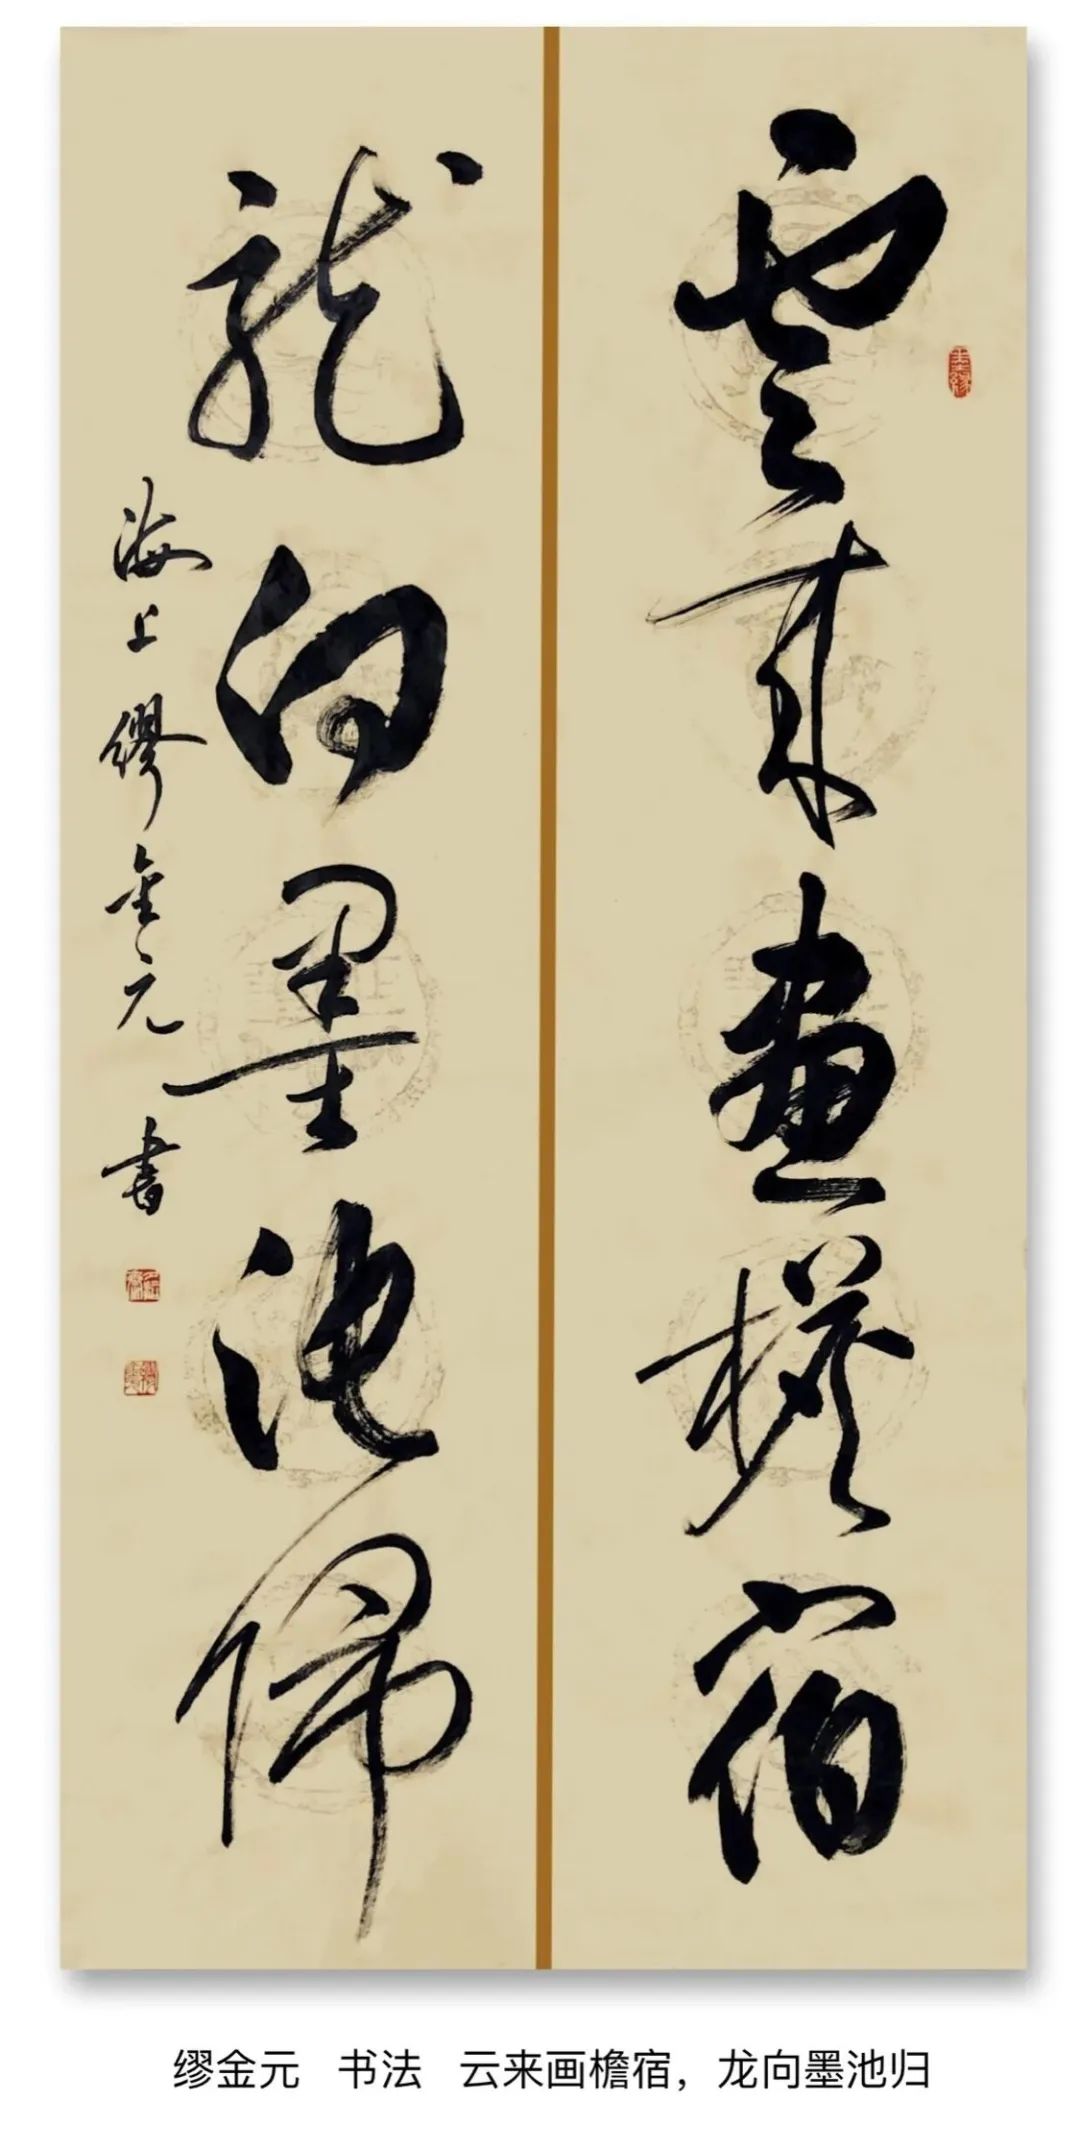 雲來畫檐宿
龍向墨池歸
海上繆金元書
缪金元 书法 云来画檐宿，龙向墨池归